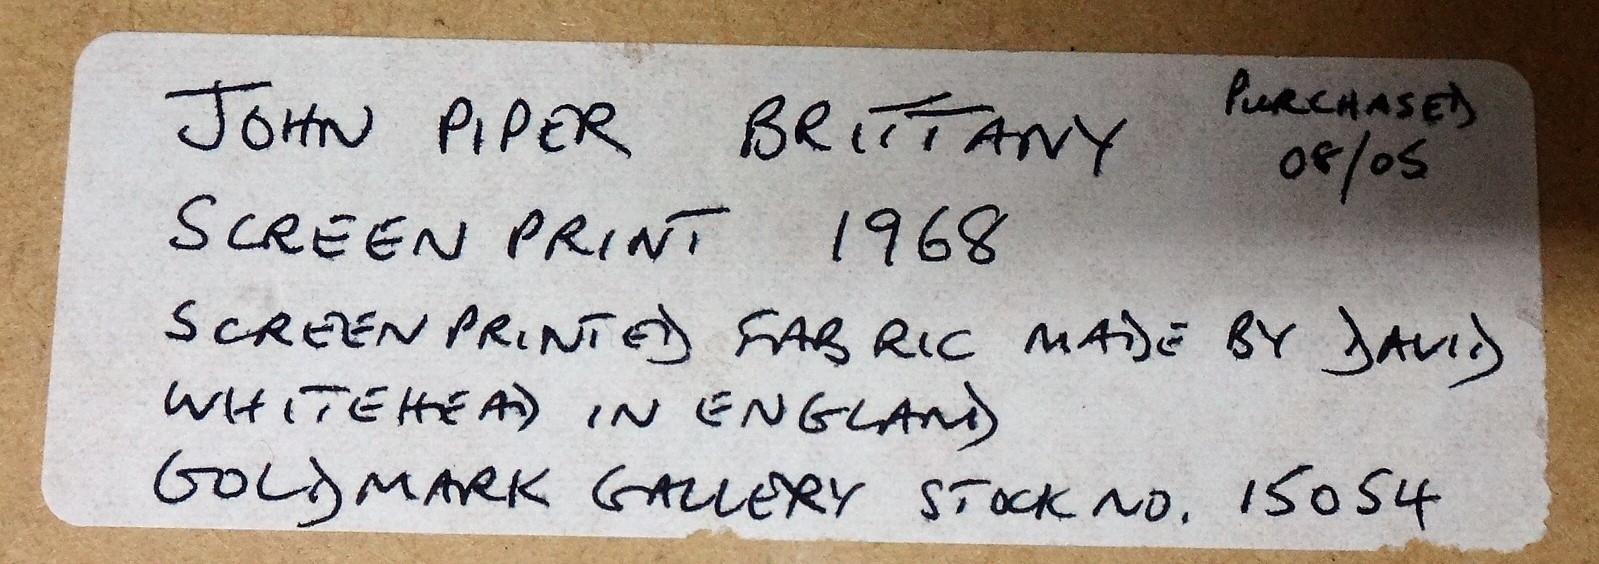 JOHN PIPER BRITTANY
PURCHASED
08/05
SCREEN PRINT 1968
SCREENPRINTED FABRIC MADE BY DAVID
WHITEHEAD IN ENGLAND
GOLDMARK GALLERY STOCK NO. 15054